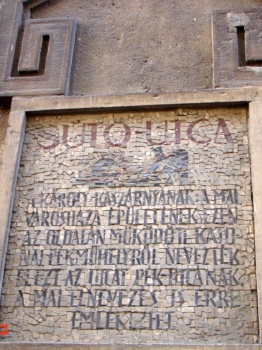 SÜTŐ-UTCA
A KÁROLY-KASZÁRNYÁNAK, A MAI
VÁROSHÁZA ÉPÜLETÉNEK EZEN
AZ OLDALÁN MŰKÖDÖTT KATO-
NAI PÉKMŰHELYRŐL NEVEZTÉK
EL EZT AZ UTCÁT PÉK-UTCÁNAK,
A MAI ELNEVEZÉS IS ERRE
EMLÉKEZTET